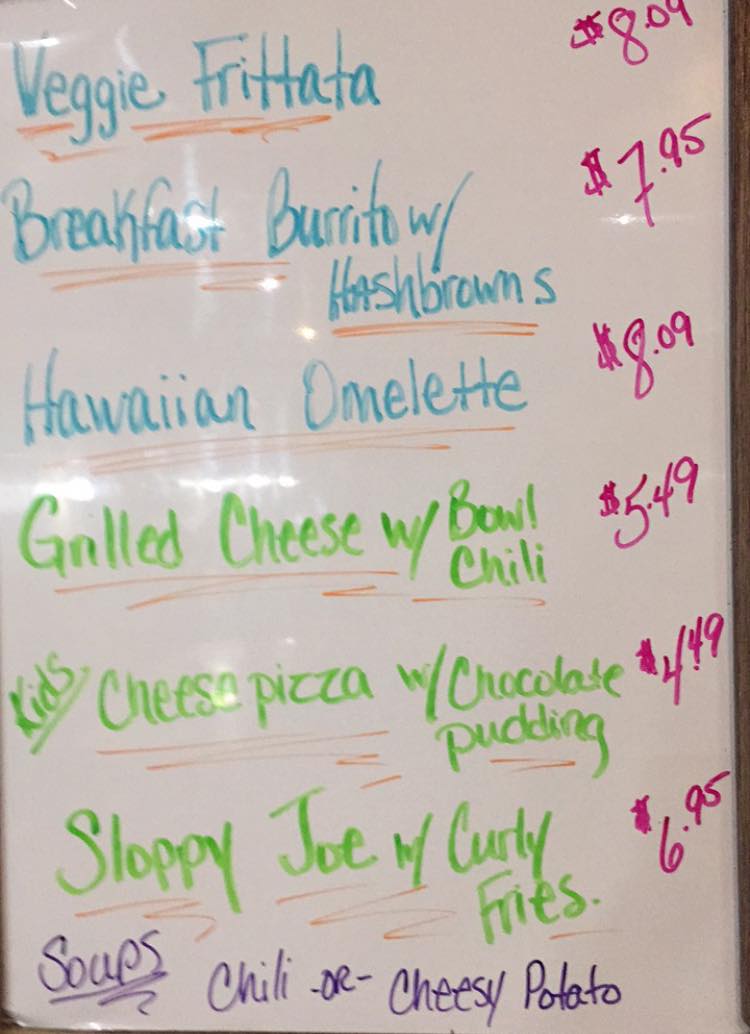 Veggie Frittata $8.09
Breakfast Burrito w/ $7.95
Hashbrowns
Hawaiian Omelette $8.09
Grilled Cheese w/ Bowl $5.49
Chili
Kids Cheese pizza w/ Chocolate $4.49
pudding
Sloppy Joe w/ Curly $6.95
Fries.
Soups Chili -OR- Cheesy Potato